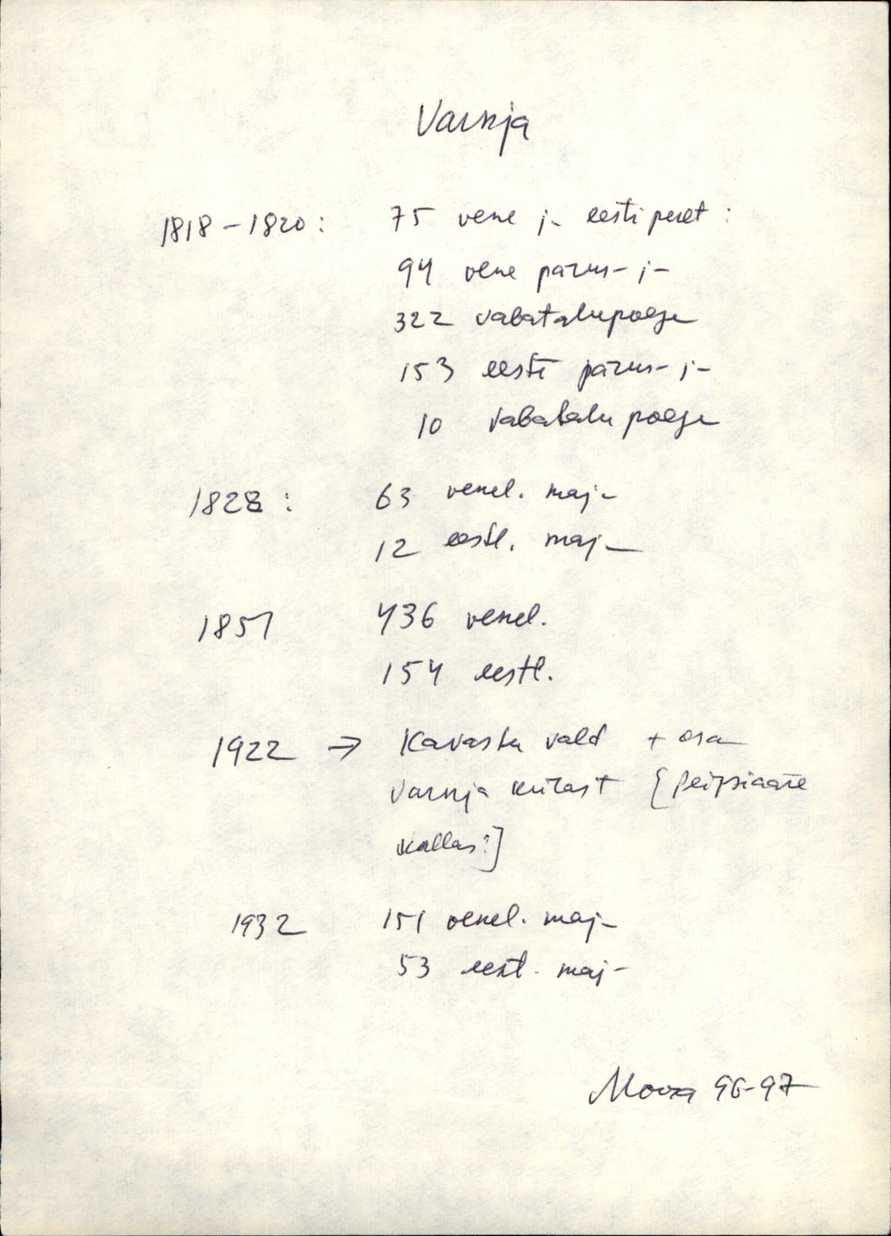 Varnja
1818 – 1820 : 75 vene j- eesti peret :
94 vene päris- j-
322 vabatalupoega
153 eesti päris- j-
10 vabatalupoega
1828 : 63 venel. maj-
12 eestl. maj-
1851 436 venel.
154 eestl.
1922 → Kavastu vald + osa
Varnja külast [Peipsiääre
kallas?]
1932 151 venel. maj-
53 eestl. maj-
Moora 96-97